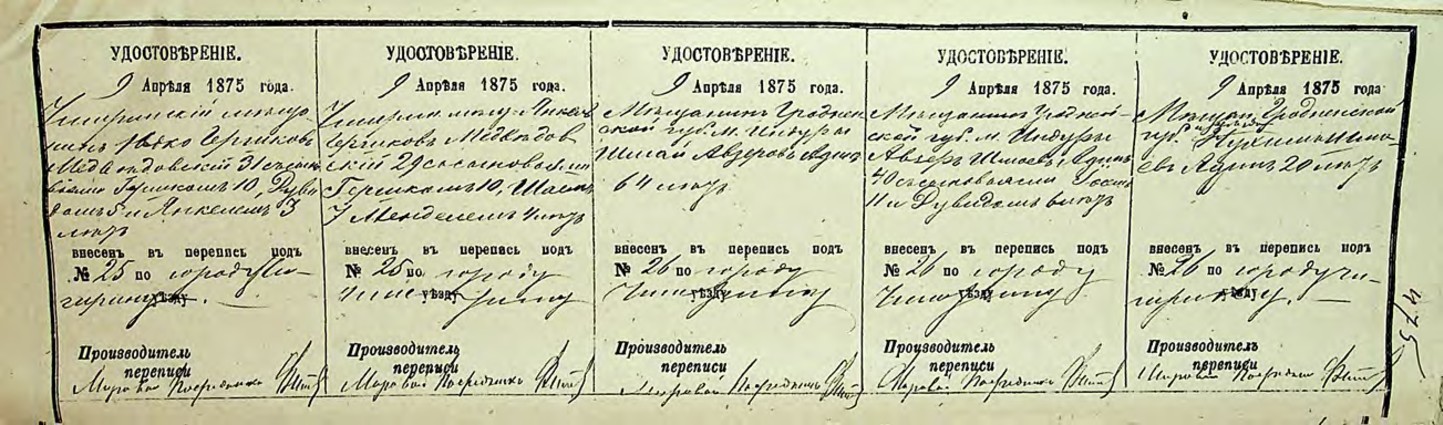 УДОСТОВѢРЕНІЕ.
9 Апрѣля 1875 года.
Чигиринскій мѣща-
нинъ Іосько Гершковъ
Медведовскій 31 съ сыно-
вьями Гершкомъ 10, Дуви-
домъ 5 и Янкелемъ 3
лѣтъ
внесенъ въ перепись подъ
№ 25 по городу Чи-
гирину уѣзду.
Производитель
переписи
Мировой Посредникъ
УДОСТОВѢРЕНІЕ.
9 Апрѣля 1875 года.
Чигирин. мѣщ. Янкель
Гершковъ Медведов
скій 29 съ сыновьями
Гершкомъ 10,
7 Менделемъ 4 лѣтъ
внесенъ въ перепись подъ
№ 25 по городу
Чигирину уѣзду
Производитель
переписи
Мировой Посредникъ
УДОСТОВѢРЕНІЕ.
9 Апрѣля 1875 года.
Мѣщанинъ Гроднен
ской губ. м. Индуры
Шмай Авзеровъ
64 лѣтъ
внесенъ въ перепись подъ
№ 26 по городу
Чигирину уѣзду
Производитель
переписи
Мировой Посредникъ
УДОСТОВѢРЕНІЕ.
9 Апрѣля 1875 года.
Мѣщанинъ Гродненской
ской губ. м. Индуры
Авзеръ Шмаевъ
40 съ сыновьями
11 и Дувидомъ 6 лѣтъ
внесенъ въ перепись подъ
№ 26 по городу
Чигирину уѣзду
Производитель
переписи
Мировой Посредникъ
УДОСТОВѢРЕНІЕ.
9 Апрѣля 1875 года
Мѣщан. Гродненской
губ. Шмо-
евъ 20 лѣтъ
внесенъ въ перепись подъ
№ 26 по городу Чи-
гирину уѣзду.
Производитель
переписи
Мировой Посредникъ
475